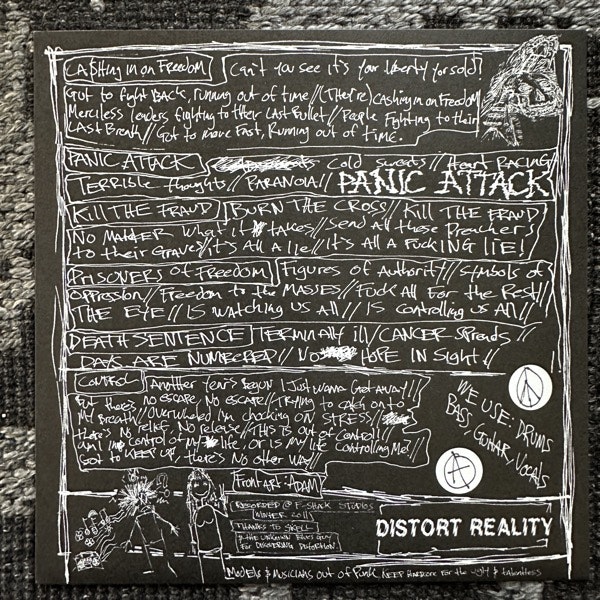 CA$Hing in on Freedom Can't you see it's your liberty for sold!
Got to fight Back, running out of time // (They're) Cashing in on Freedom
Merciless leaders, fighting to their last Bullet // People Fighting to their
Last Breath // Got to move Fast, Running out of time.
PANIC ATTACK Cold sweats // Heart RACING
Terrible thoughts // PARANOIA // PANIC ATTACK
Kill THE FRAUD BURN THE CROSS // Kill THE FRAUD
NO MATTER what it takes // Send All these Preachers
to their Graves // it's All A lie // It's All A FuckING LIE!
Prisoners of Freedom Figures of Authority // Symbols of
oppression // Freedom to the MASSES // Fuck All For the Rest //
THE EYE // IS watching us All // IS controlling us All //
DEATH SENTENCE Terminally ill // CANCER Spreads //
DAYS ARE NUMBERED // NO HOPE IN Sight //
Control Another year's Begun I Just Wanna Get Away //
But there's no escape, No escape // Trying to catch on to
My Breath // Overwhelmed, I'm choking on STRESS //
there's No relief, No release // THIS IS out of Control //
Am I in control of my life, Or is my life Controlling Me? //
Got to Keep up, there's No other Way //
WE USE: DRUMS
BASS, GUITAR, VOCALS
Front art: ADAM
RECORDED @ F-SHACK STUDIOS
WINTER 2011
THANKS TO
& THE UNKNOWN BLUES GUY
FOR DISCOVERING DISTORTION
DISTORT REALITY
Models & Musicians out of Punk. KEEP Hardcore For the ugly & talentless